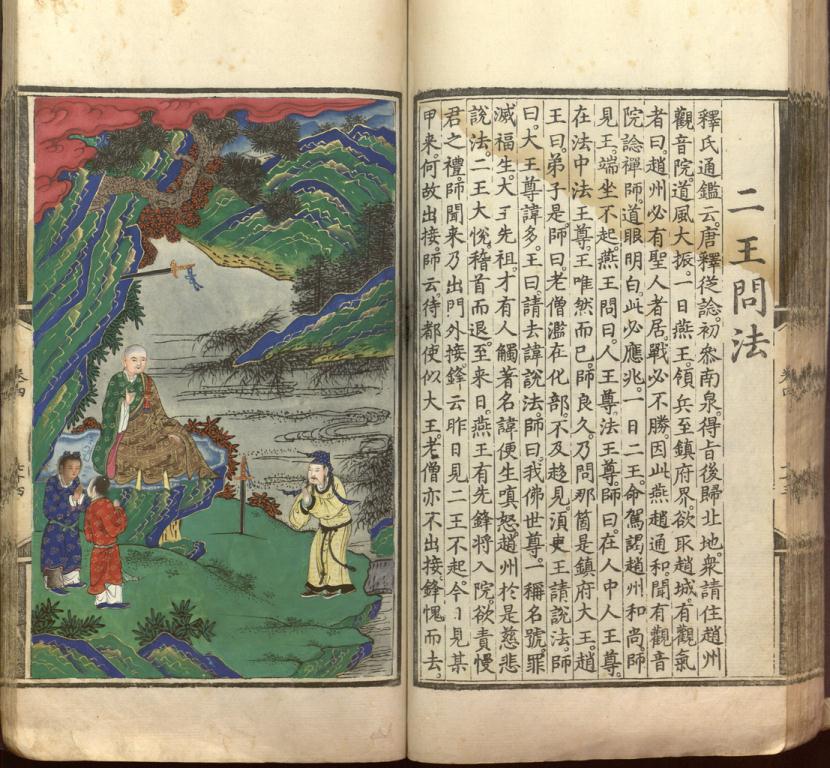 二王問法
釋氏通鑑云。唐釋從諗。初叅南泉。得旨後歸北地。衆請住趙州
觀音院。道風大振。一日燕王。領兵至鎮府界。欲取趙城。有觀氣
者曰。趙州必有聖人者居。戰必不勝。因此燕趙通和。聞有觀音
院諗禪師。道眼明白。此必應兆。一日二王。命駕謁趙州和尚。師
見王。端坐不起。燕王問曰。人王尊。法王尊。師曰。在人中人王尊。
在法中法王尊。王唯然而已。師良久。乃問那箇是鎮府大王。趙
王曰。弟子是。師曰。老僧濫在化部。不及趍見。湏臾王請說法。師
曰。大王尊諱多。王曰。請去諱說法。師曰。我佛世尊。一稱名號。罪
滅福生。大王先祖。才有人觸著名諱。便生嗔怒。趙州於是慈悲
說法。二王大悅。稽首而退。至來日。燕王有先鋒將入院。欲責慢
君之禮。師聞來乃出門外接。鋒云。昨日見二王不起。今日見某
甲來。何故出接。師云。待都使似大王。老僧亦不出接。鋒愧而去。